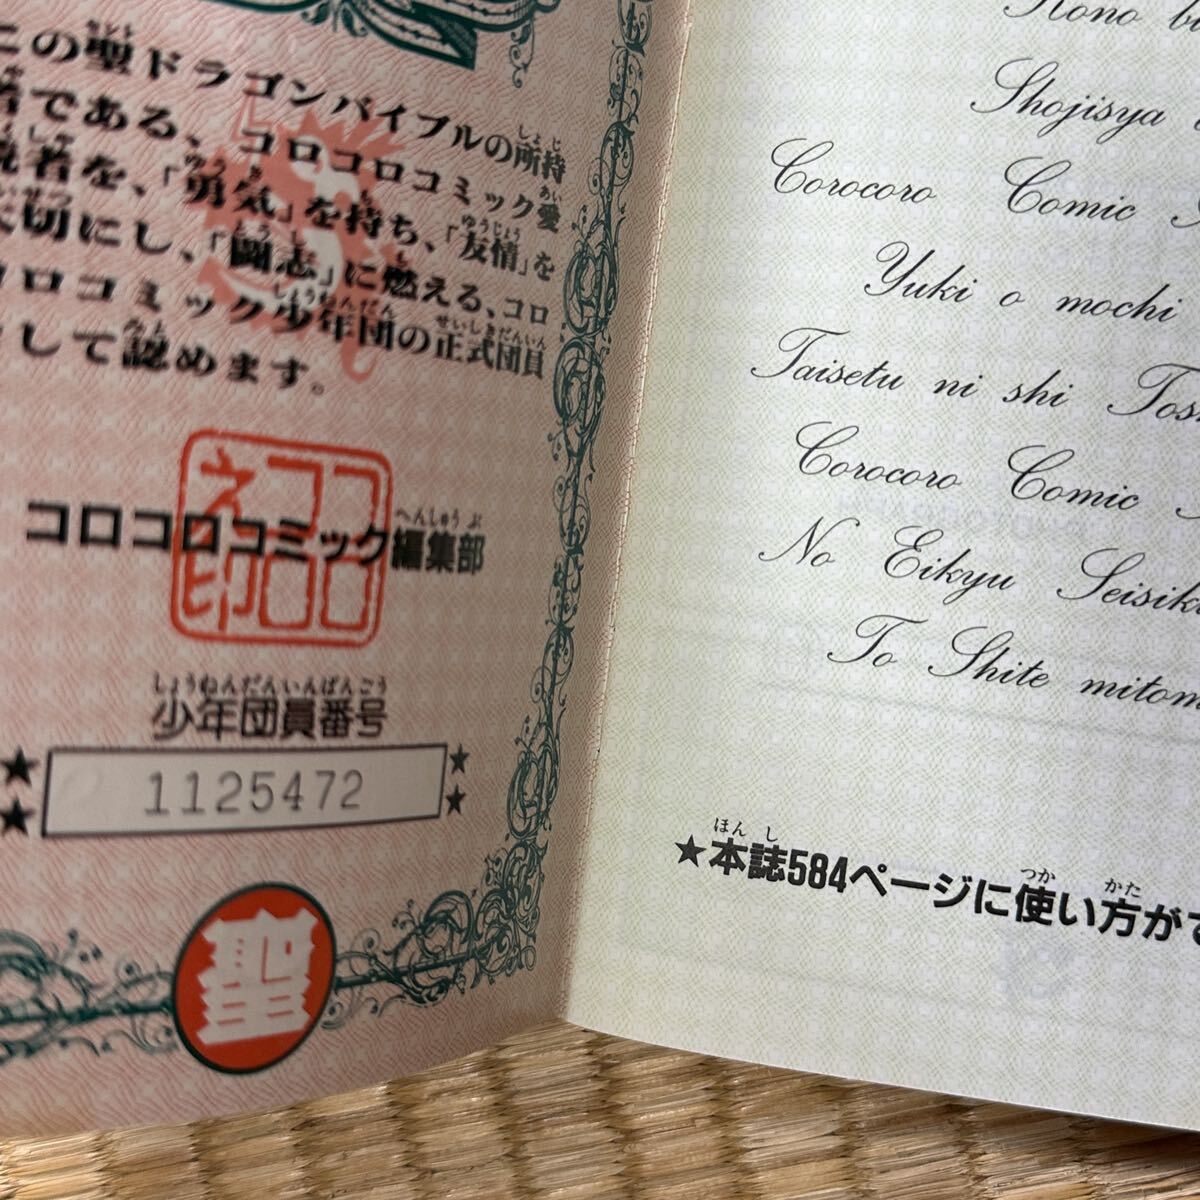 この聖ドラゴンバイブルの所持
者である、コロコロコミック愛
読者を、「勇気」を持ち、「友情」を
大切にし、「闘志」に燃える、コロ
コロコミック少年団の正式団員
として認めます。
コロコロコミック編集部
コロコロ
コロコロ
え印
少年団員番号
★
★
1125472
★
★
聖
Kono
Shojisya
Corocoro Comic
Yuki o mochi
Taisetu ni shi
Corocoro Comic
No Eikyu
To Shite
★本誌584ページに使い方が